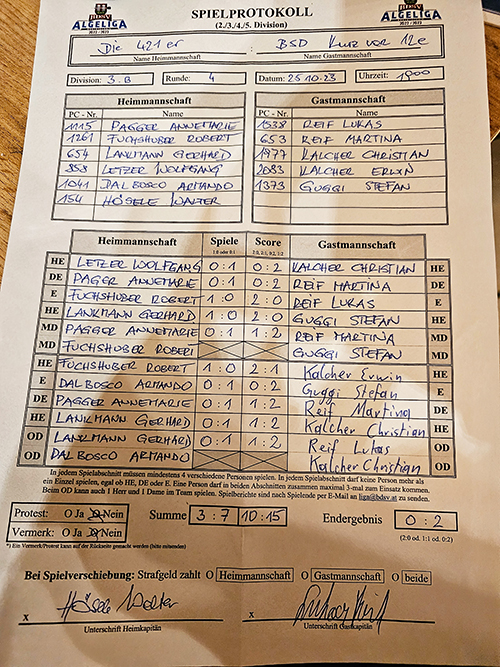 BDSV
ALGELIGA
2022 - 2023
SPIELPROTOKOLL
(2./3./4./5. Division)
BDSV
ALGELIGA
2022 - 2023
Die 421er
BSD Kurz vor 12e
Name Heimmannschaft
Name Gastmannschaft
Division: 3.B Runde: 4 Datum: 25.10.23 Uhrzeit: 1900
Heimmannschaft Gastmannschaft
PC - Nr. Name PC - Nr. Name
1115 PAGGER ANNEMARIE 1538 REIF LUKAS
1261 FUCHSHUBER ROBERT 653 REIF MARTINA
654 LANKMANN GERHARD 1977 KALCHER CHRISTIAN
853 LETZER WOLFGANG 2083 KALCHER ERWIN
1041 DAL BOSCO ARMANDO 1373 GUGGI STEFAN
154 HÖSELE WALTER
Heimmannschaft Spiele Score Gastmannschaft
1:0 oder 0:1 2:0, 2:1, 0:2, 1:2
HE LETZER WOLFGANG 0:1 0:2 KALCHER CHRISTIAN HE
DE PAGER ANNEMARIE 0:1 0:2 REIF MARTINA DE
E FUCHSHUBER ROBERT 1:0 2:0 REIF LUKAS E
HE LANKMANN GERHARD 1:0 2:0 GUGGI STEFAN HE
MD PAGGER ANNEMARIE 0:1 1:2 REIF MARTINA MD
MD FUCHSHUBER ROBERT GUGGI STEFAN MD
HE FUCHSHUBER ROBERT 1:0 2:1 Kalcher Erwin HE
E DAL BOSCO ARMANDO 0:1 0:2 Guggi Stefan E
DE PAGGER ANNEMARIE 0:1 1:2 Reif Martina DE
HE LANKMANN GERHARD 0:1 1:2 Kalcher Christian HE
OD LANKMANN GERHARD 0:1 1:2 Reif Lukas OD
OD DAL BOSCO ARMANDO Kalcher Christian OD
In jedem Spielabschnitt müssen mindestens 4 verschiedene Personen spielen. In jedem Spielabschnitt darf keine Person mehr als
ein Einzel spielen, egal ob HE, DE oder E. Eine Person darf in beiden Abschnitten zusammen maximal 3-mal zum Einsatz kommen.
Beim OD kann auch 1 Herr und 1 Dame im Team spielen. Spielberichte sind nach Spielende per E-Mail an liga@bdsv.at zu senden.
Protest: O Ja O Nein Summe 3:7 10:15 Endergebnis 0:2
Vermerk: O Ja O Nein (2:0 od. 1:1 od. 0:2)
*) Ein Vermerk/Protest kann auf der Rückseite gemacht werden (bitte mitsenden)
Bei Spielverschiebung: Strafgeld zahlt O Heimmannschaft O Gastmannschaft O beide
x Hösele Walter x
Unterschrift Heimkapitän Unterschrift Gastkapitän